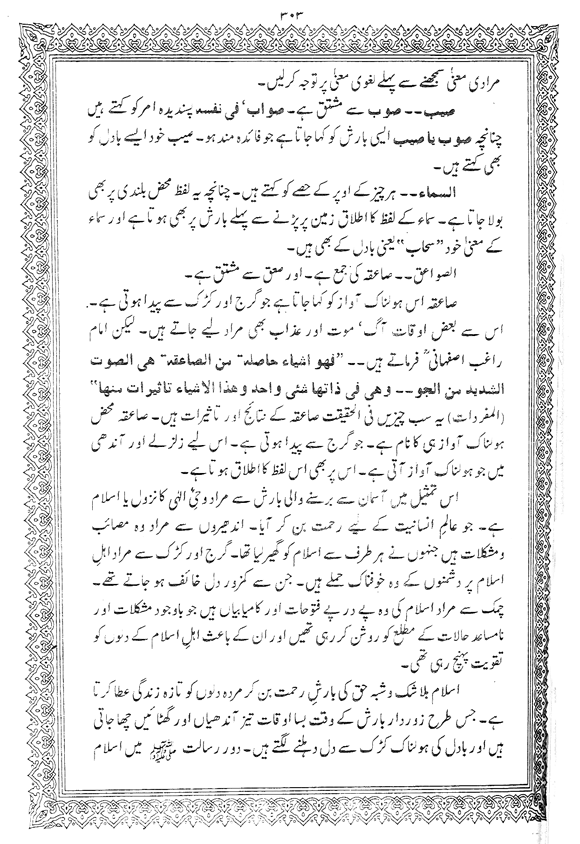 ۳۰۳
مرادی معنٰی سمجھنے سے پہلے لغوی معنٰی پر توجہ کرلیں۔
صیب۔۔صوب سے مشتق ہے۔ صواب‘ فی نفسہ پسندیدہ امر کو کہتے ہیں
چنانچہ صوب یا صیب ایسی بارش کو کہا جاتا ہے جو فائدہ مند ہو۔ صیب خود ایسے بادل کو
بھی کہتے ہیں۔
السماء۔۔ ہر چیز کے اوپر کے حصے کو کہتے ہیں۔ چنانچہ یہ لفظ محض بلندی پر بھی
بولا جاتا ہے۔ سماء کے لفظ کا اطلاق زمین پر پڑنے سے پہلے بارش پر بھی ہوتا ہے اور سماء
کے معنٰی خود ”سحاب“ یعنی بادل کے بھی ہیں۔
الصواعق۔۔ صاعقہ کی جمع ہے۔ اور صعق سے مشتق ہے۔
صاعقہ اس ہولناک آواز کو کہا جاتا ہے جو گرج اور کڑک سے پیدا ہوتی ہے۔
اس سے بعض اوقات آگ‘ موت اور عذاب بھی مراد لیے جاتے ہیں۔ لیکن امام
راغب اصفہانیؒ فرماتے ہیں۔۔ ”فھو اشیاء حاصلۃ من الصاعقۃ ھی الصوت
الشدید من الجو۔۔ وھی فی ذاتھا شئی واحد وھذا الاشیاء تاثیرات منھا“
(المفردات) یہ سب چیزیں فی الحقیقت صاعقہ کے نتائج اور تاثیرات ہیں۔ صاعقہ محض
ہولناک آواز ہی کا نام ہے۔ جو گرج سے پیدا ہوتی ہے۔ اس لیے زلزلے اور آندھی
میں جو ہولناک آواز آتی ہے۔ اس پر بھی اس لفظ کا اطلاق ہوتا ہے۔
اس تمثیل میں آسمان سے برسنے والی بارش سے مراد وحیٔ الٰہی کا نزول یا اسلام
ہے۔ جو عالمِ انسانیت کے لیے رحمت بن کر آیا۔ اندھیروں سے مراد وہ مصائب
ومشکلات ہیں جنہوں نے ہر طرف سے اسلام کو گھیر لیا تھا۔ گرج اور کڑک سے مراد اہلِ
اسلام پر دشمنوں کے وہ خوفناک حملے ہیں۔ جن سے کمزور دل خائف ہو جاتے تھے۔
چمک سے مراد اسلام کی وہ پے در پے فتوحات اور کامیابیاں ہیں جو باوجود مشکلات اور
نامساعد حالات کے مطلع کو روشن کر رہی تھیں اور ان کے باعث اہلِ اسلام کے دلوں کو
تقویت پہنچ رہی تھی۔
اسلام بلا شک و شبہ حق کی بارشِ رحمت بن کر مردہ دلوں کو تازہ زندگی عطا کرتا
ہے۔ جس طرح زوردار بارش کے وقت بسا اوقات تیز آندھیاں اور گھٹائیں چھا جاتی
ہیں اور بادل کی ہولناک کڑک سے دل دہلنے لگتے ہیں۔ دور رسالت ﷺ میں اسلام